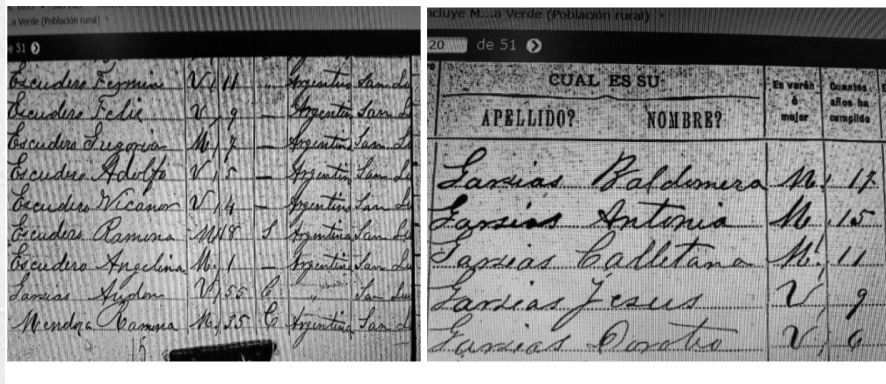 ...a Verde (Población rural) >
e 51
Escudero Fermin V, 11 . Argentino San Lu
Escudero Felix V, 9 — Argentin San L
Escudero Gregoria M, 7 — Argentin San L
Escudero Adolfo V, 5 — Argentin San L
Escudero Nicanor V, 4 — Argentin San L
Escudero Ramona M, 18 S Argentina San Lu
Escudero Angelina M, 1 — Argentin San Lu
Garcias V, 55 C " San Lu
Mendoza Ramona M, 35 C Argentina San L
ncluye M...a Verde (Población rural) >
20 de 51
CUAL ES SU
APELLIDO? NOMBRE?
Es varón ó mujer
Cuantos años ha cumplido
Garsias Baldomera M, 17
Garsias Antonia M, 15
Garsias Calletana M, 11
Garsias Jesus V, 9
Garsias Doroteo V, 6